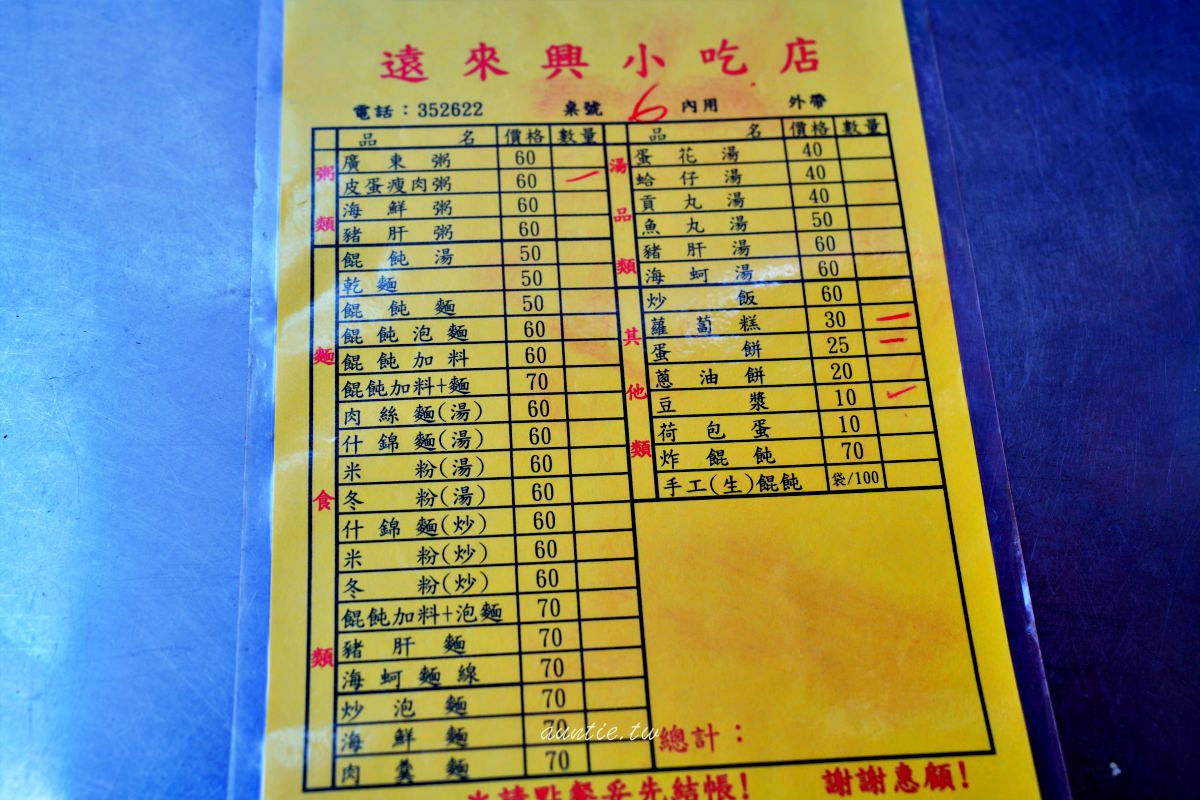 遠來興小吃店
電話：352622 桌號 6 內用 外帶
品名 價格 數量
粥類
廣東粥 60
皮蛋瘦肉粥 60 一
海鮮粥 60
豬肝粥 60
麵食類
餛飩湯 50
乾麵 50
餛飩麵 50
餛飩泡麵 60
餛飩加料 60
餛飩加料+麵 70
肉絲麵(湯) 60
什錦麵(湯) 60
米粉(湯) 60
冬粉(湯) 60
什錦麵(炒) 60
米粉(炒) 60
冬粉(炒) 60
餛飩加料+泡麵 70
豬肝麵 70
海蚵麵線 70
炒泡麵 70
海鮮麵 70
肉羹麵 70
品名 價格 數量
湯品類
蛋花湯 40
蛤仔湯 40
貢丸湯 40
魚丸湯 50
豬肝湯 60
海蚵湯 60
其他類
炒飯 60
蘿蔔糕 30 一
蛋餅 25 一
蔥油餅 20
豆漿 10
荷包蛋 10
炸餛飩 70
手工(生)餛飩 袋/100
總計：
請點餐妥先結帳! 謝謝惠顧!
auntie.tw